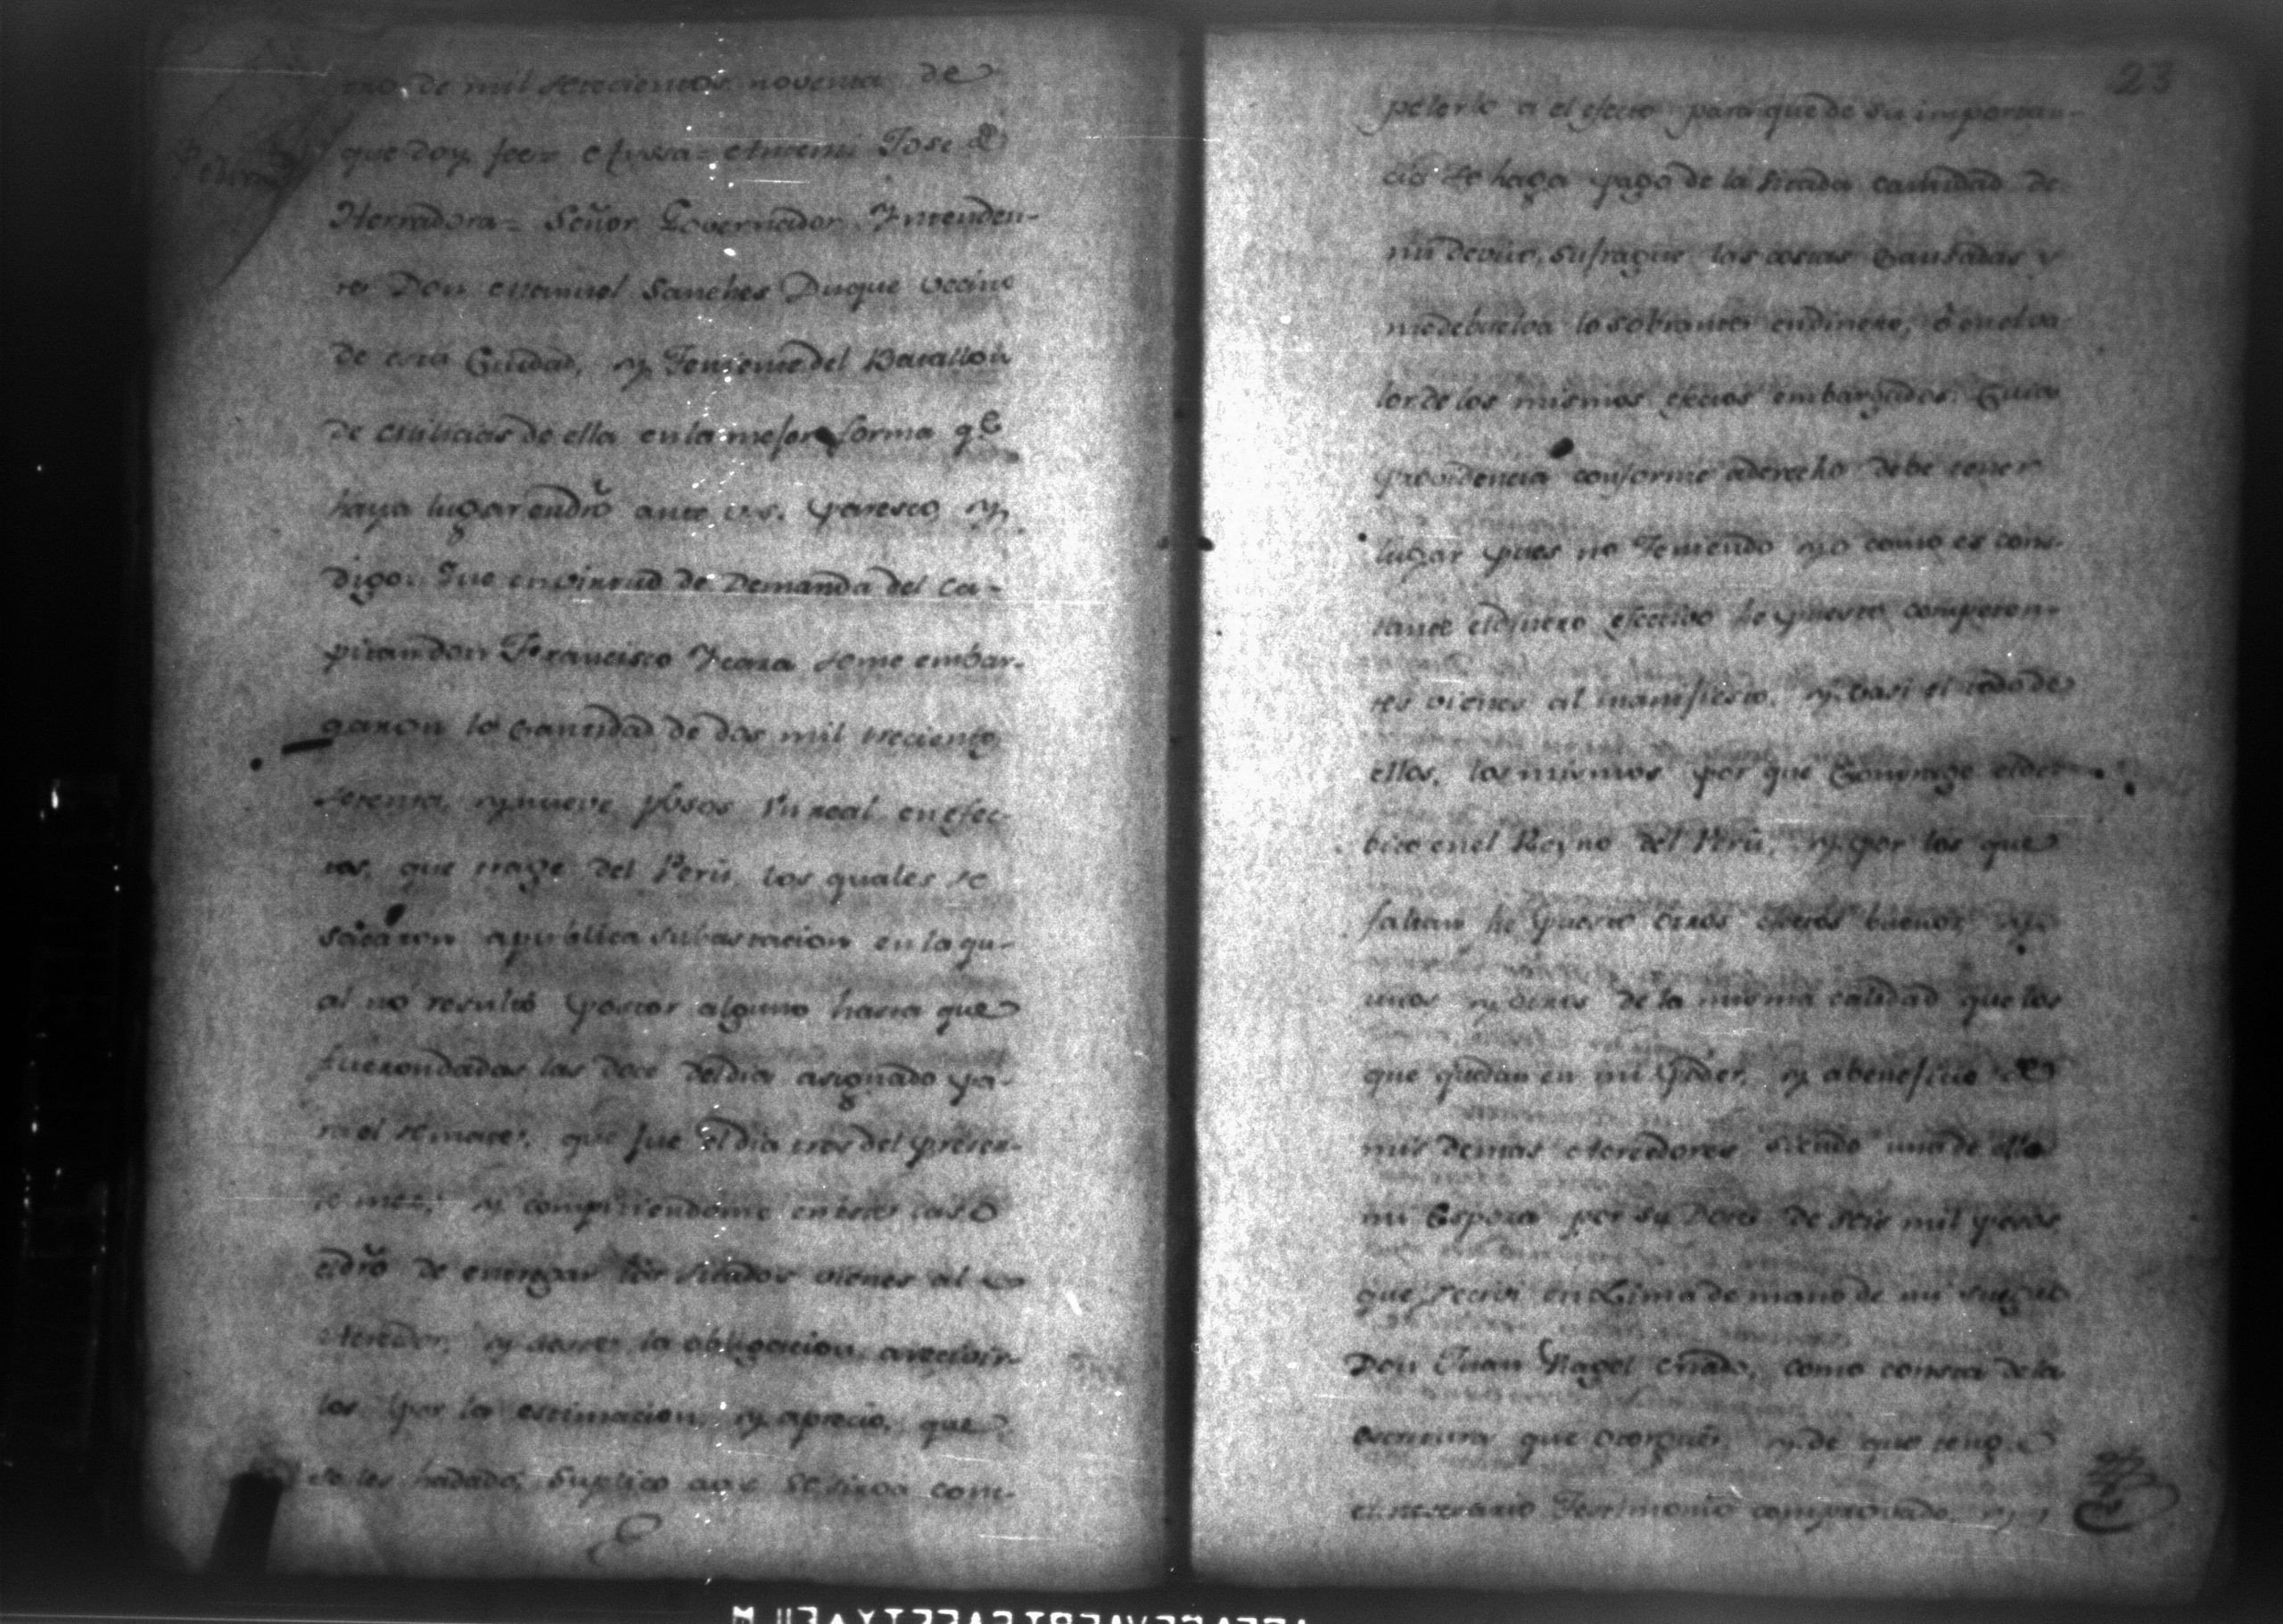 de mil setecientos noventa de
que doy fee= Jose de
Herradora= Señor Governador Yntenden-
te Don Manuel Sanches Duque vecino
de esta Ciudad, y Teniente del Batallon
de Milicias de ella en la mejor forma qe
haya lugar endro ante v.s. paresco, y
digo: Que envirtud de Demanda del Ca-
pitan don Francisco seme embar-
garon la Cantidad de dos mil treciento
setenta, y nueve psos Un real en efec-
tos, que trage del Perú, los quales se
sacaron apublica subastacion en la qu-
al no resultó postor alguno hasta que
fueron dadas las doce deldia asignado pa-
ra el remate, que fue el dia tres del presen-
te mes, y compitiendome eneste caso
eldro de entregar los sitados vienes al
Acredor, y aeste la obligacion arecivir-
los por la estimacion, y aprecio, que
se les hadado; Suplico avs se sirva com-
23
pelerlo a el efecto para que de su importan-
cia se haga pago de la sitada cantidad de
mi devito, sufrague las costas Causadas y
medebuelva lo sobrante endinero, ó enel va
lor de los mismos efectos embargados. Cuia
providencia conforme aderecho debe tener
lugar pues no Teniendo yo como es cons-
tante eldinero efectivo he puesto competen-
tes vienes al manifiesto, y casi el todo de
ellos, los mismos por que Contrage elde-
bito enel Reyno del Perú, y por los que
faltan he puesto otros efectos buenos, y
unos y otros de la misma calidad que los
que quedan en mi poder, y abeneficio de
mis demas Acreedores siendo una de ellos
mi Esposa por su Dote de seis mil pesos
que recivi en Lima de mano de mi suegro
Don Juan criado, como consta dela
escritura que otorgué, y de que tengo
el necesario Testimonio comprovado, y